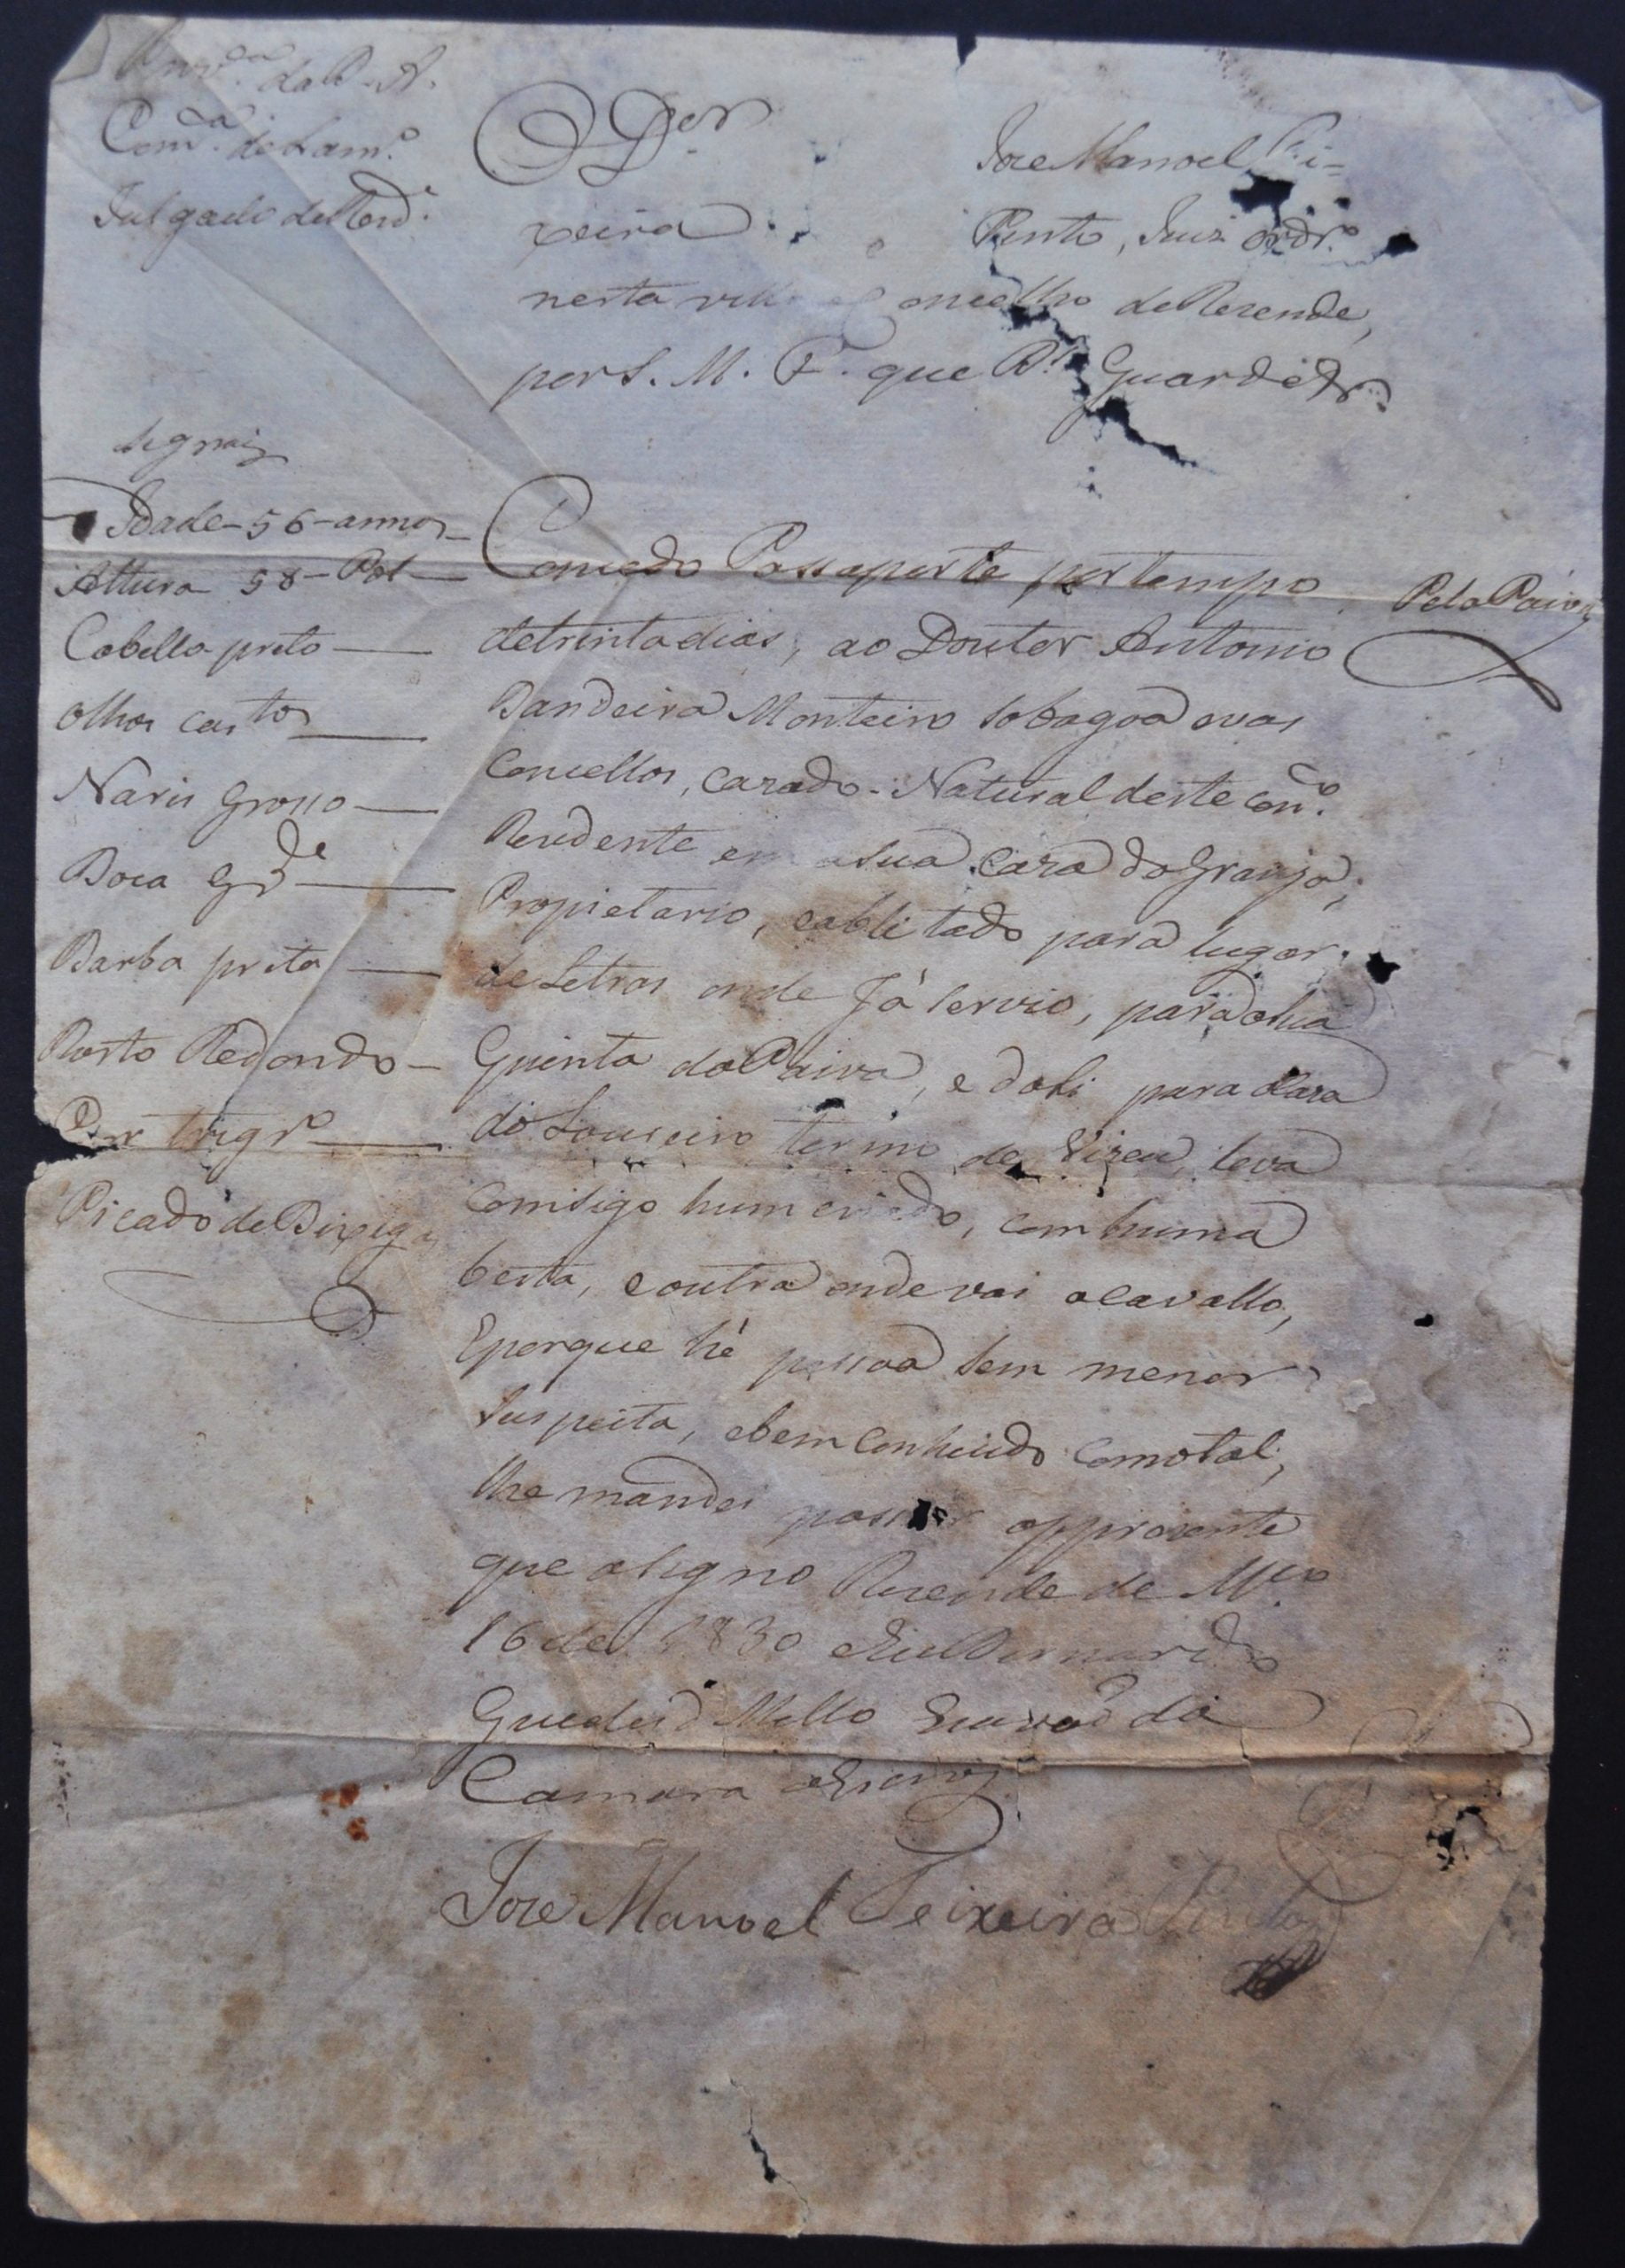 Prov.ca da B. A.
Com.ca de Lam.o
Julgado de Rezd.e
O D.or Joze Manoel Tei=
xeira Pinto, Juiz ordr.o
nesta villa e Concelho de Rezende,
por S. M. F. que D.s Guarde &
Signais
Idade - 56 - annos
Altura 58 - Pol
Cabello preto
Olhos castos
Naris Grosso
Boca Gd.e
Barba preta
Rosto Redondo
Cor trigr.o
Picado de Bixigas
Concedo Passaporte por tempo
de trinta dias, ao Doutor Antonio
Bandeira Monteiro Sobagoa evas
Concellos, cazado. Natural deste con.o
Rezidente em a sua Caza da Granja,
Propietario, eablitado para lugar
de Letras onde Já servio, para a sua
Quinta da Paiva, e dahi para a Caza
do Loureiro termo de Vizeu, leva
Comsigo hum criado, com huma
besta, e outra onde vai a cavallo,
E porque hé pessoa sem menor
suspeita, e bem conhecido como tal,
lhe mandei passar o pprezente
que asigno Rezende de M.ço
16 de 1830 e Eu Bernardo
Guedes d Mello Escrivão da
Camara o Escrevi
Joze Manoel Teixeira Pinto
Pela Paiva